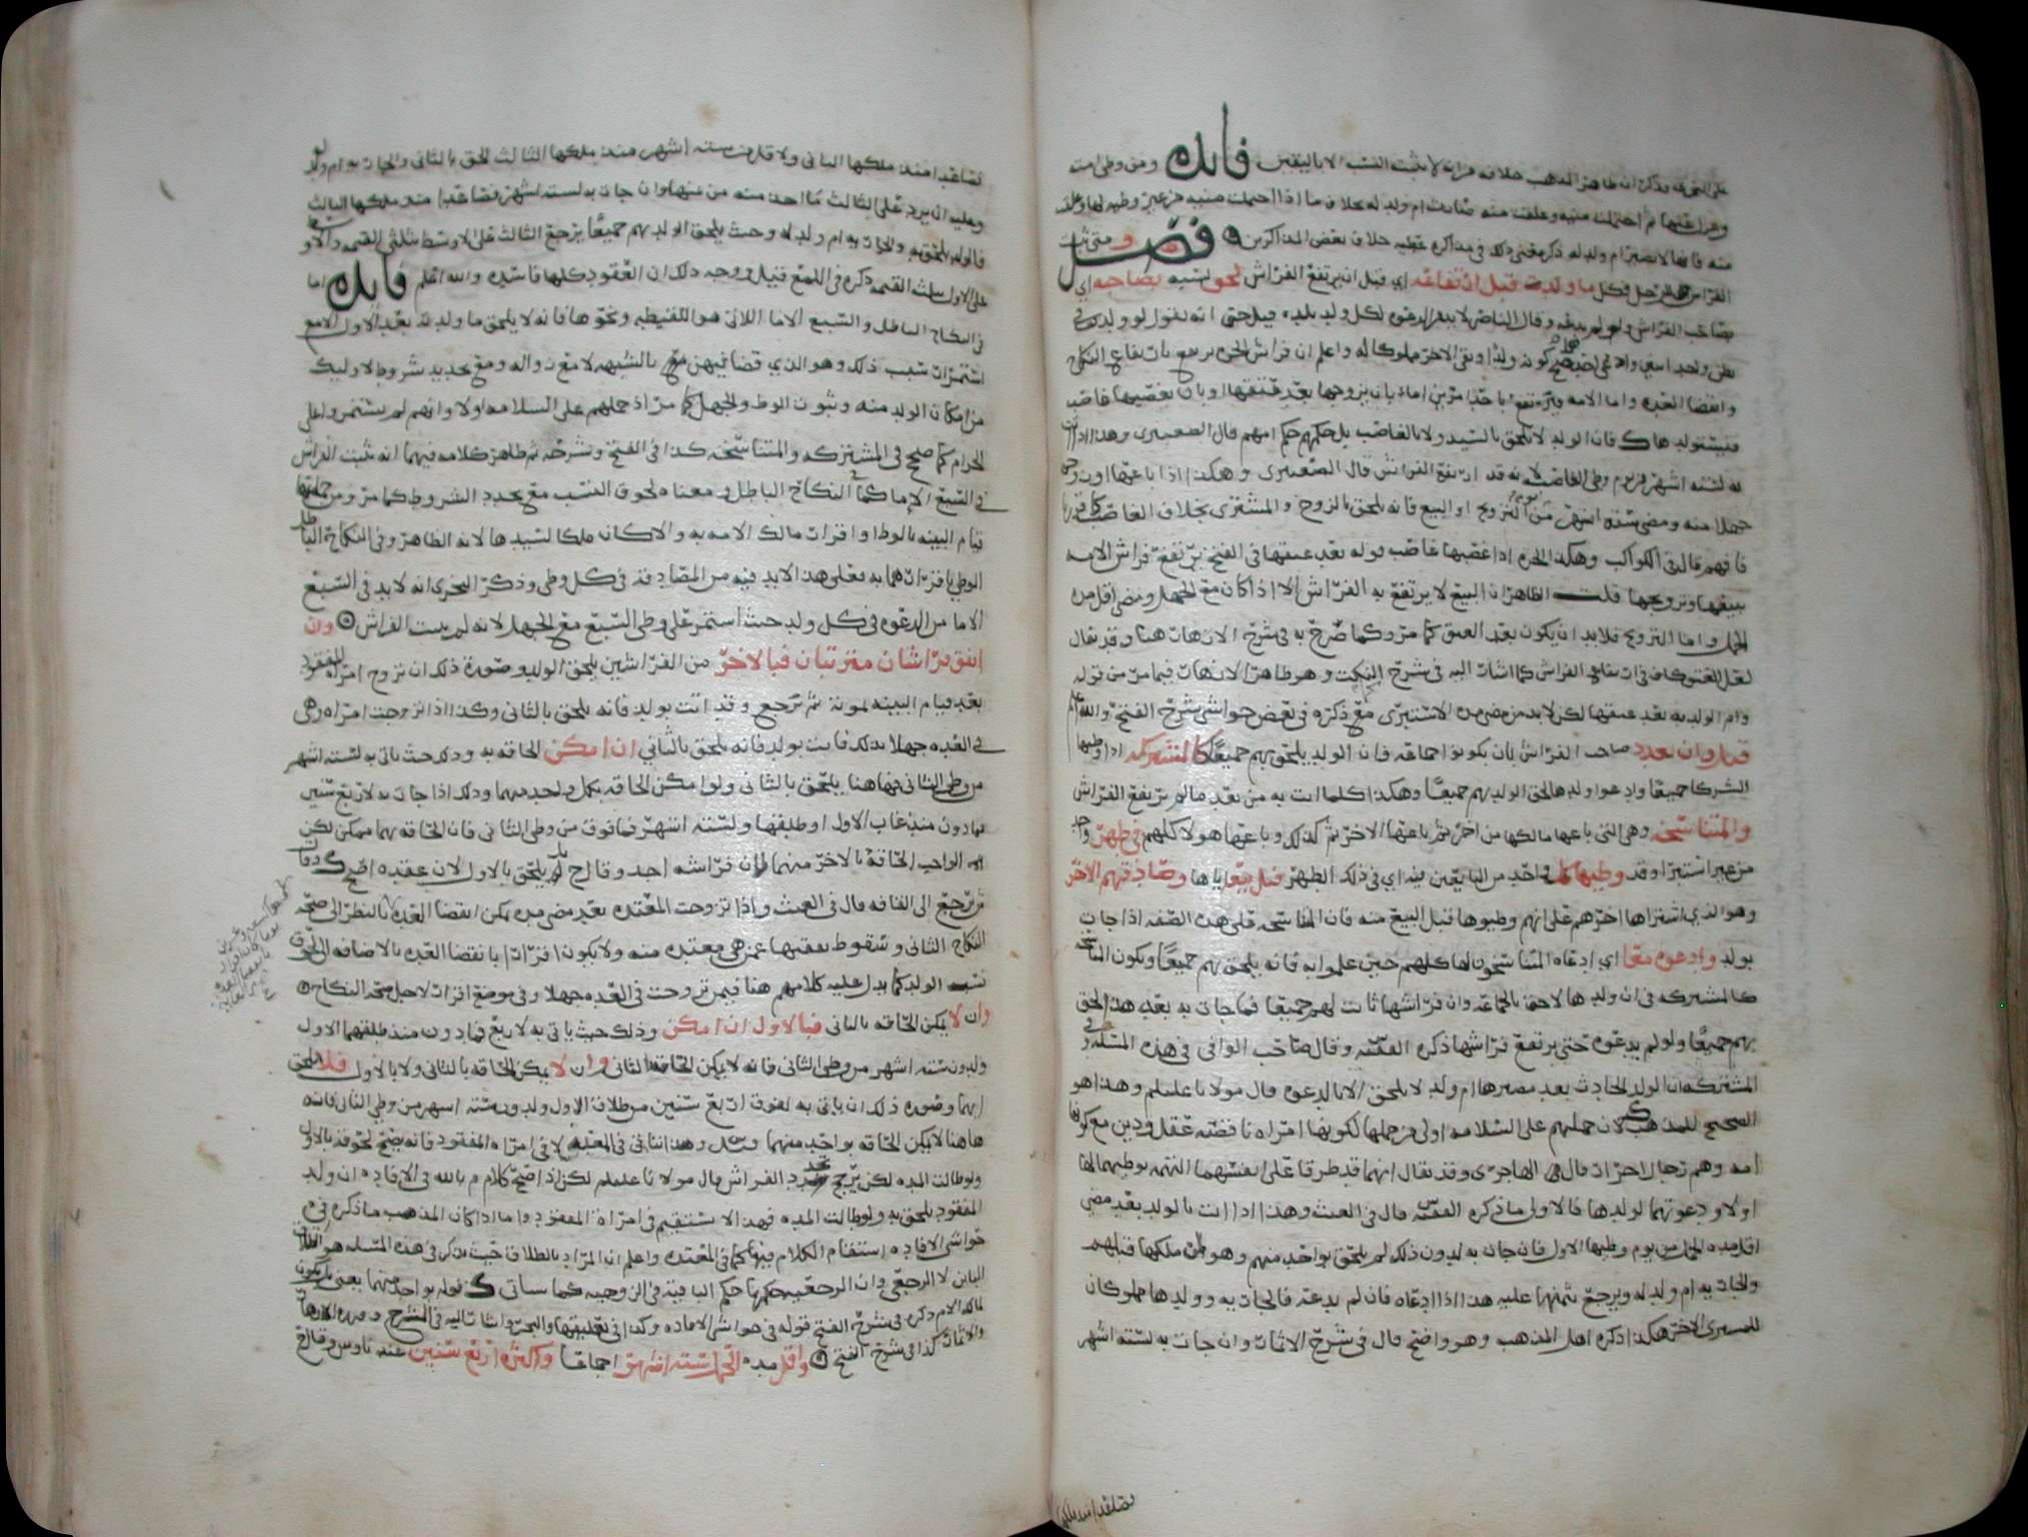 على التحقيق وذكر ان ظاهر المذهب خلافه لانه لا يثبت النسب الا باليقين فائده ومن وطى امته
وعزل عنها ثم احتملت منيه وعلقت منه صارت ام ولد له بخلاف ما اذا احتملت منيه من غير وطيه لها وعلقت
منه فانها لا تصير ام ولد له ذكر معنى ذلك في مذاكره عطيه خلاف بعض المذاكرين فصل و متى ثبت
الفراش للرجل فكل ما ولدت قبل ارتفاعه اي قبل ان يرتفع الفراش لحق نسبه بصاحبه اي
بصاحب الفراش ولو لم يدعه وقال الناصر لا بد من الدعوه لكل ولد يلده قيل حتى انه يقول لو ولدت في
بطن واحد اثنين وادعى احدهما صح كونه ولدا وبقى الاخر مملوكا له واعلم ان فراش الحره يرتفع بارتفاع النكاح
وانقضا العده واما الامه فيرتفع باحد امرين اما بان يزوجها بعد عتقها او بان يغصبها غاصب
فيستولدها فان الولد لا يلحق بالسيد ولا بالغاصب بل حكمهم حكم امهم قال الصعيتري وهذا اذا اتت
به لسته اشهر من يوم وطى الغاصب لانه قد ارتفع الفراش قال الصعيتري وهكذا اذا باعها او زوجها
جهلا منه ومضى سته اشهر من يوم التزويج او البيع فانه يلحق بالزوج والمشتري بخلاف الغاصب كما قدمنا
فافهم قال في الكواكب وهكذا الحره اذا غصبها غاصب قوله بعد عتقها في الفتح يرتفع فراش الامه
ببيعها وتزويجها قلت الظاهر ان البيع لا يرتفع به الفراش الا اذا كان مع الجهل ومضى اقل مده
الحمل واما التزويج فلابد ان يكون بعد العتق كما مر وكما صرح به في شرح الازهار هنا وقد يقال
لعل العتق كاف في ارتفاع الفراش كما اشار اليه في شرح النكت وهو ظاهر الازهار فيما مر من قوله
وام الولد به بعد عتقها لكن لابد من مضي مده الاستبرى مع ذكره في بعض حواشي شرح الفتح والله اعلم
قيل وان تعدد صاحب الفراش بان يكونوا جماعه فان الولد يلحق بهم جميعا كالمشتركه اذا وطيها
الشركا جميعا وادعوا ولدها لحق الولد بهم جميعا وهكذا كلما اتت به من بعد مالم يرتفع الفراش
والمتناسخه وهي التي باعها مالكها من اخر ثم باعها الاخر ثم كذلك وباعها هولا كلهم في طهر واحد
من غير استبرا وقد وطيها كل واحد من البايعين فيه اي في ذلك الطهر قبل بيعه اياها وصادقهم الاخر
وهو الذي اشتراها اخرهم على انهم وطيوها قبل البيع منه فان المتناسخه على هذه الصفه اذا جات
بولد وادعوه معا اي ادعاه المتناسخون لها كلهم حين علموا به فانه يلحق بهم جميعا وتكون المتناسخه
كالمشتركه في ان ولدها لاحق بالجماعه وان فراشها ثابت لهم جميعا فما جات به بعد هذا لحق
بهم جميعا ولو لم يدعوه حتى يرتفع فراشها ذكره الفقيه وقال صاحب الوافي في هذه المسله وفي
المشتركه ان الولد الحادث بعد مصيرها ام ولد لا يلحق الا بالدعوه قال مولانا عليلم وهذا هو
الصحيح للمذهب لان حملهم على السلامه اولى من حملها لكونها امراه ناقصه عقل ودين مع كونها
امه وهم رجال احرار قال الهاجري وقد يقال انهما قد طرقا على انفسهما التهمه بوطيهما لها
اولا ودعوتهما لولدها فالاولى ما ذكره الفقيه قال في الغيث وهذا اذا اتت بالولد بعد مضي
اقل مده الحمل من يوم وطيها الاول فان جات به لدون ذلك لم يلحق بواحد منهم وهو لمن ملكها قبلهم
والجات به ام ولد له ويرجع بثمنها عليه هذا اذا ادعاه فان لم يدعه فالجات به وولدها مملوكان
للمشتري الاخر هكذا ذكره اهل المذهب وهو واضح قال في شرح الاثمار وان جات به لسته اشهر
فصاعدا منذ ملكها
فصاعدا منذ ملكها الثاني ولاقل من سته اشهر منذ ملكها الثالث لحق بالثاني والجات به ام ولد له
وعليه ان يرد على الثالث ما احد منه من ثمنها وان جات به لسته اشهر فصاعدا منذ ملكها الثالث
فالولد يلحق به والجات به ام ولد له وحيث يلحق الولد بهم جميعا يرجع الثالث على الاوسط بثلثي القيمه والاوسط
على الاول بثلث القيمه ذكره في اللمع قيل ووجه ذلك ان العقود كلها فاسده والله اعلم فائده اما
في النكاح الباطل والسبع الاما اللاتي هو اللقيطه ونحوها فانه لا يلحق ما ولد له بعد الاول الا مع
استمرار سبب ذلك وهو الذي قضا فيهن مع بالشبهه لا مع زواله ومع تجديد شروط الاوليك
من امكان الولد منه وثبوت الوطى والجهل كما مر اذ حملهم على السلامه اولا وانهم لم يستمروا على
الحرام كما صلح في المشتركه والمتناسخه كذا في الفتح وشرحه ثم ظاهر كلامه فيهما انه ثبت الفراش
في السبع الاما كما في النكاح الباطل ومعناه لحوق النسب مع تجدد الشروط كما مر ومن جملتها
قيام البينه بالوطى او اقرار مالك الامه به والا كان ملكا لسيدها لانه الظاهر وفي النكاح الباطل
الوطى باقرارهما به فعلى هذا لابد فيه من المصادقه في كل وطى وذكر النجري انه لابد في السبع
الاما من الدعوه في كل ولد حيث استمر على وطى السبع مع الجهل لانه لم يثبت الفراش وان
اتفق فراشان مترتبان فبالاخر من الفراشين يلحق الولد وصورة ذلك ان تزوج امراه المفقود
بعد قيام البينه بموته ثم يرجع وقد اتت بولد فانه يلحق بالثاني وكذا اذا تزوجت امراه وهي
في العده جهلا بذلك فاتت بولد فانه يلحق بالثاني ان امكن الحاقه به وذلك حيث ياتي به لسته اشهر
من وطى الثاني فهاهنا يلحق بالثاني ولو امكن الحاقه بكل واحد منهما وذلك اذا جات به لاربع سنين
فما دون منذ غاب الاول او طلقها ولسته اشهر فما فوق من وطى الثاني فان الحاقه بهما ممكن لكن
الواجب الحاقه بالاخر منهما لان فراشه اجد وقال ح بل يلحق بالاول لان عقده اصح وقال
ش يرجع الى القافه قال في الغيث واذا تزوجت المعتده بعد مضي مده يمكن انقضا العده بالنظر الى صحه
النكاح الثاني وسقوط نفقتها عن هي معتده منه ولا يكون اقرارا بانقضا العده بالاضافه الى لحوق
نسب الولد كما يدل عليه كلامهم هنا فيمن تزوجت في العده جهلا وفي موضع اقرار لاجل صحه النكاح
وان لا يمكن الحاقه بالثاني فبالاول ان امكن وذلك حيث ياتي به لاربع فما دون منذ طلقها الاول
ولدون سته اشهر من وطى الثاني فانه لا يمكن الحاقه بالثاني وان لا يمكن الحاقه بالثاني ولا بالاول فلا يلحق
ايهما وصوره ذلك ان ياتي به لفوق اربع سنين من طلاق الاول ولدون سته اشهر من وطى الثاني فانه
هاهنا لا يمكن الحاقه بواحد منهما وهذا انما تاتى في المعتده لا في امراه المفقود فانه يصح لحوقه بالاول
ولو طالت المده لكن يرجح تجدد الفراش قال مولانا عليلم لكن اذا صح كلام م بالله في الافاده ان ولد
المفقود يلحق به ولو طالت المده فهذا لا يستقيم في امراة المفقود واما اذا كان المذهب ما ذكره في
حواشي الافاده استقام الكلام فيها كما في المعتده واعلم ان المراد بالطلاق حيث يذكر في هذه المسله هو الطلاق
الباين لا الرجعي وان الرجعيه حكمها حكم الباقيه في الزوجيه كما سياتي قوله بواحد منهما يعني بل يكون
لمالك الام ذكره في شرح الفتح قوله في حواشي الافاده وكذا في تعليقها والبحر واشار اليه في الشرح
والاثمار كذا في شرح الفتح واقل مده الحمل سته اشهر اجماعا واكثره اربع سنين عند ن وش وقال ح